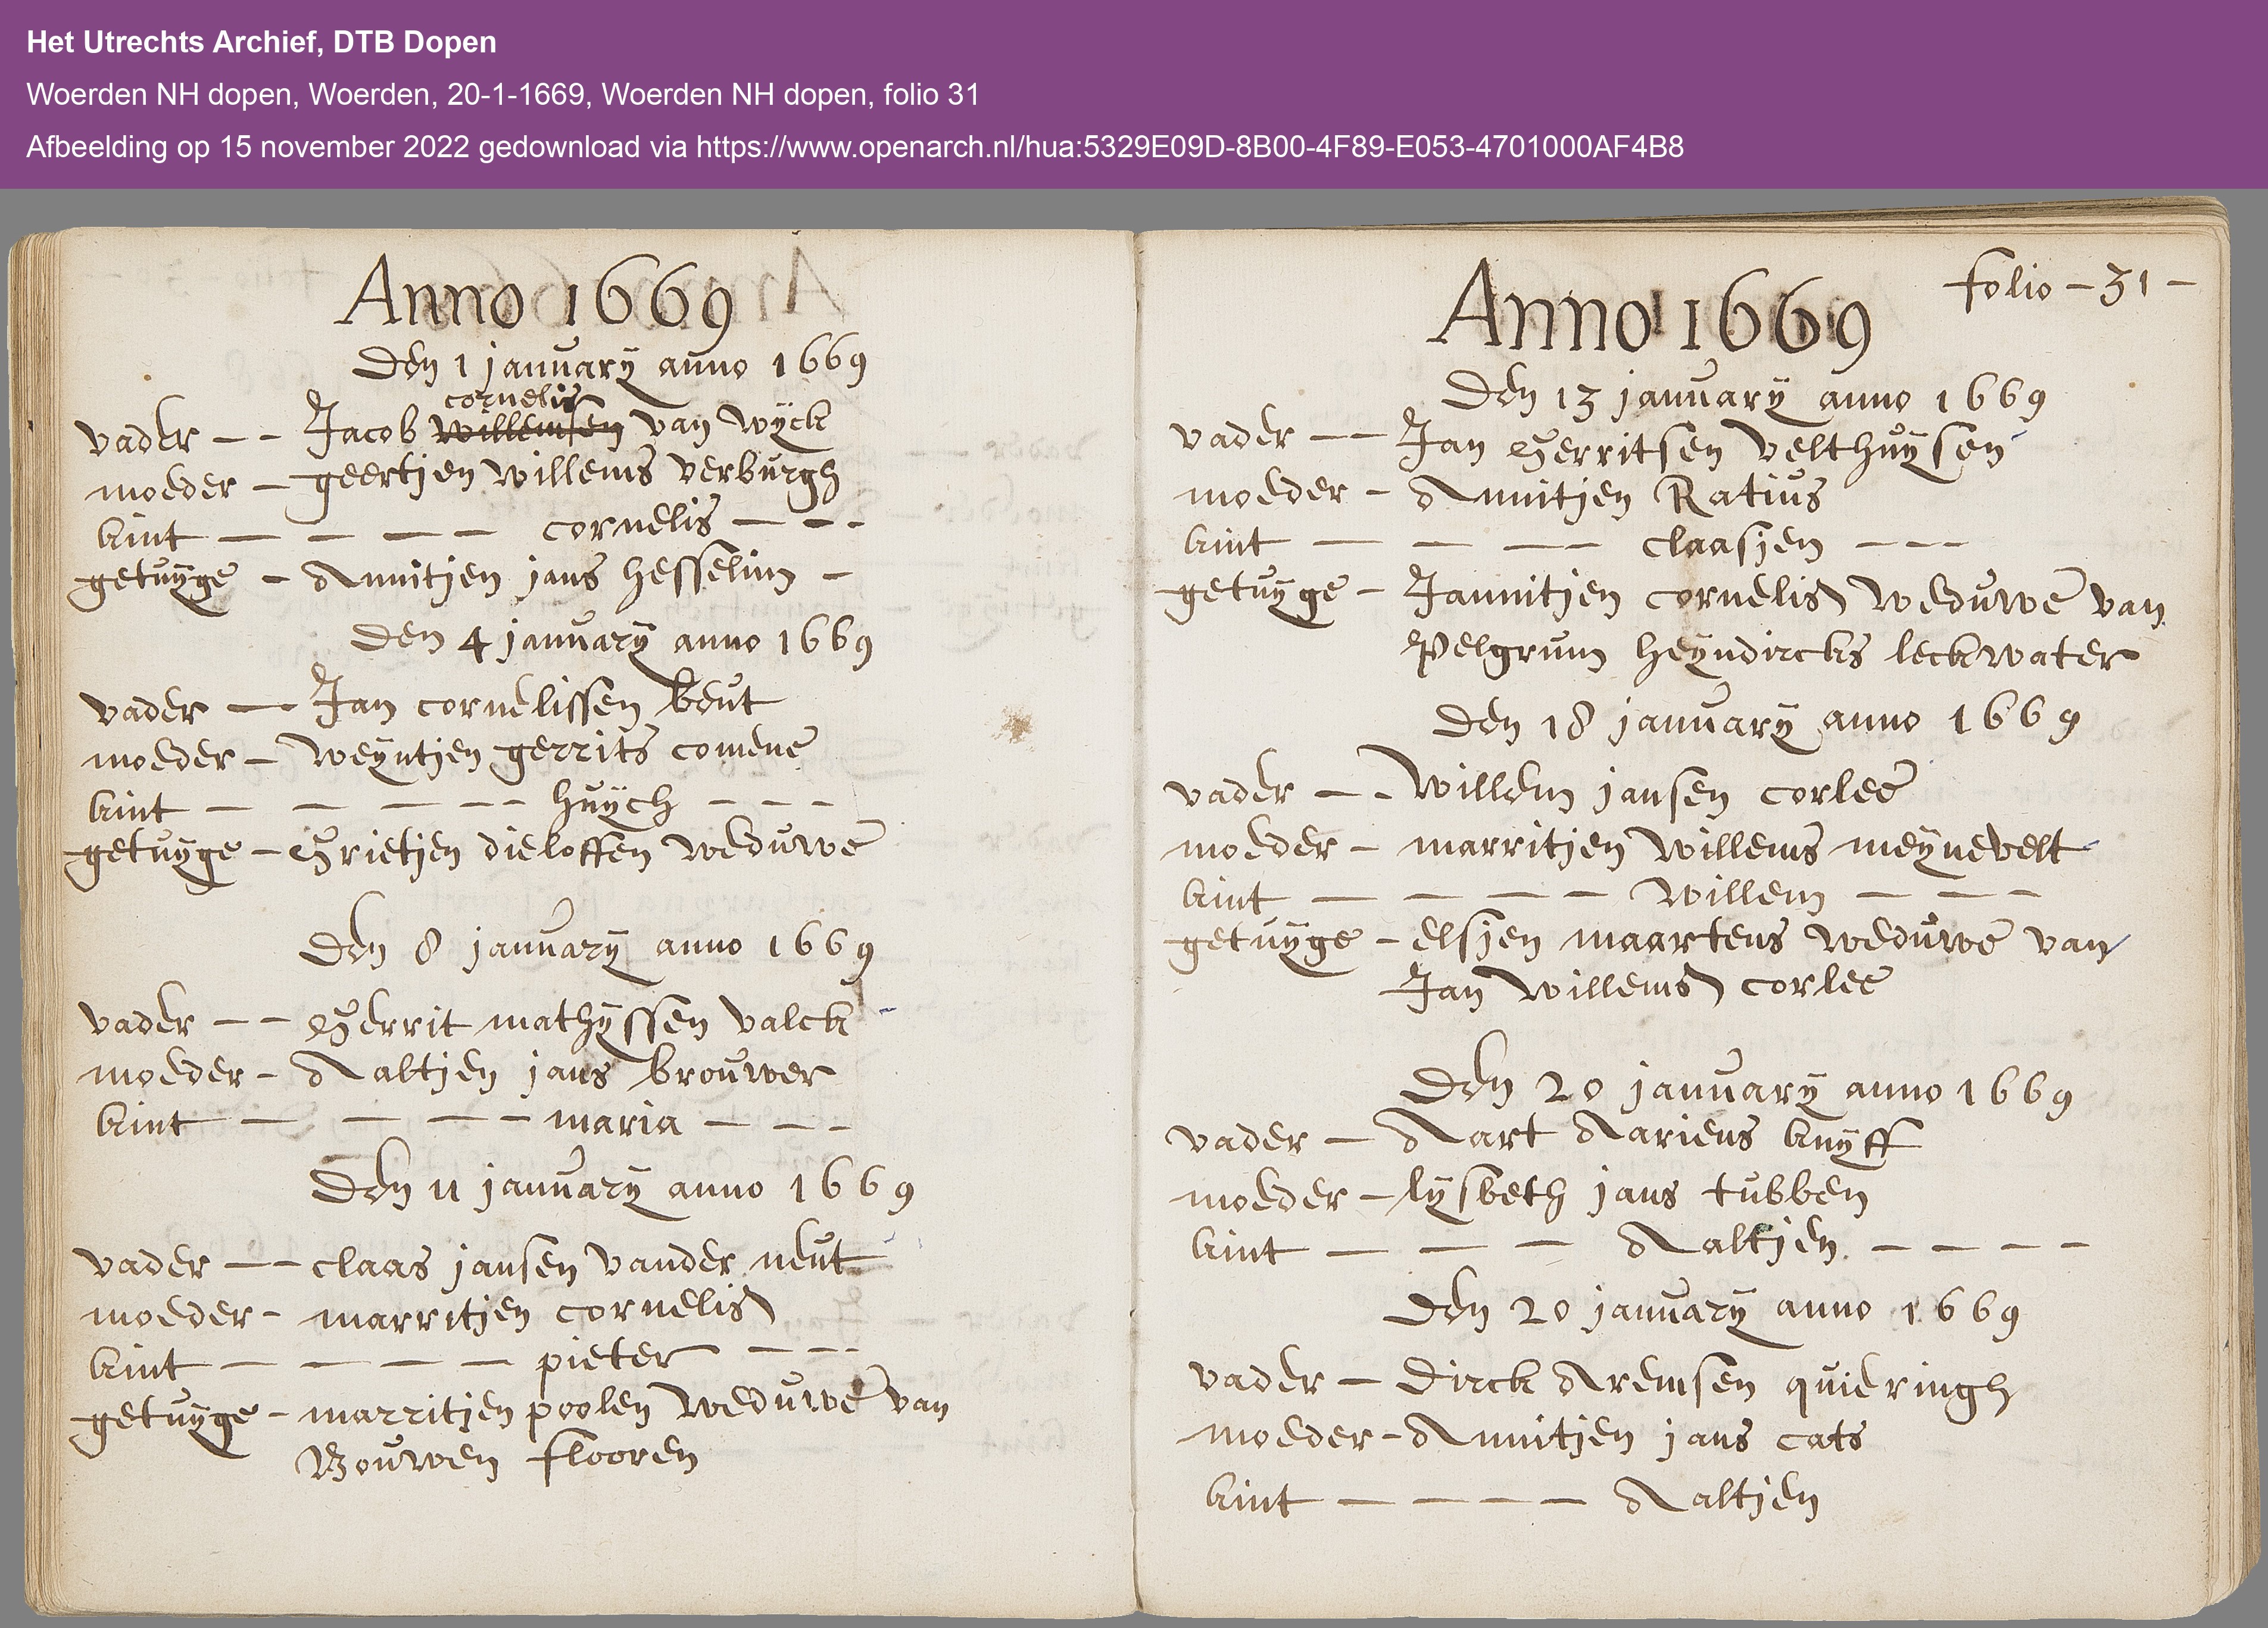 Het Utrechts Archief, DTB Dopen
Woerden NH dopen, Woerden, 20-1-1669, Woerden NH dopen, folio 31
Afbeelding op 15 november 2022 gedownload via https://www.openarch.nl/hua:5329E09D-8B00-4F89-E053-4701000AF4B8
Anno 1669
Den 1 january anno 1669
cornelis
vader -- Jacob willemsen van wyck
moeder - geertjen willems verburgh
kint - - - - cornelis - - -
getuyge - Annitjen jans hesselim -
Den 4 january anno 1669
vader - Jan cornelissen beut
moeder - weyntjen gerrits comene
kint - - - - - huych - - -
getuyge - Grietjen dieloffen weduwe
Den 8 january anno 1669
vader -- Gerrit mathyssen valck -
moeder - Aaltjen jans brouwer
kint - - - - maria - - -
Den 11 january anno 1669
vader -- claas jansen vander neut
moeder - marritjen cornelis
kint - - - - pieter - - -
getuyge - marritjen poolen weduwe van
Bouwen flooren
folio - 31 -
Anno 1669
Den 13 january anno 1669
vader -- Jan Gerritsen velthuysen
moeder - Annitjen Ratius
kint - - - - claasjen - - -
getuyge - Jannitjen cornelis weduwe van
Pelgrum heyndircks leckwater
Den 18 january anno 1669
vader -- willem jansen corlee
moeder - marritjen willems meynevelt
kint - - - - willem - - -
getuyge - elsjen maartens weduwe van
Jan willems corlee
Den 20 january anno 1669
vader - Aart Aariens knyff
moeder - lysbeth jans tubben
kint - - - Aaltjen - - - -
Den 20 january anno 1669
vader - Dirck Aremsen quieringh
moeder - Annitjen jans cats
kint - - - - Aaltjen